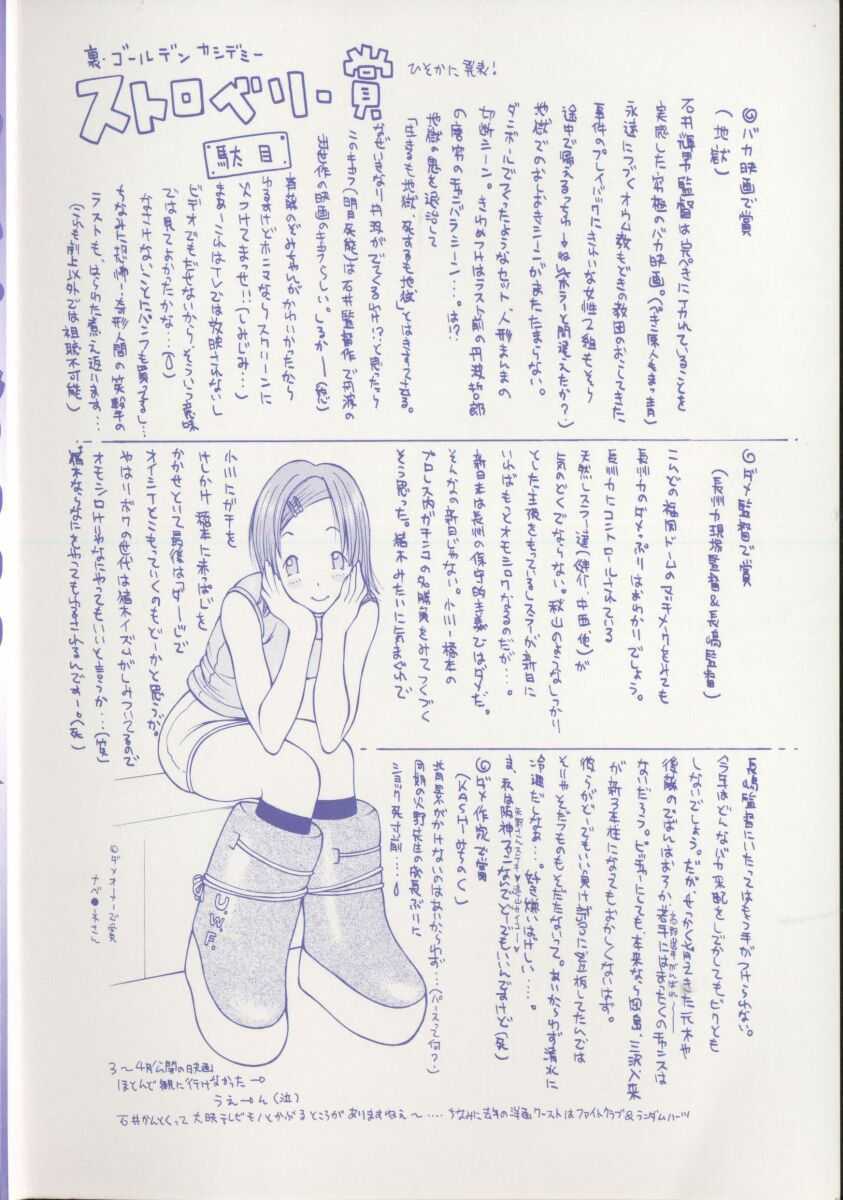 裏・ゴールデン カシデミー
ストロベリー・賞
ひそかに発表!
駄目
◎バカ映画で賞
(地獄)
石井輝男監督は完ぺきにイカれていることを
実感した究極のバカ映画。
永遠につづくオウム教もどきの教団のおこしてきた
事件のプレイバックに
途中で帰える
地獄でのおしおきシーンがまたたまらない。
ダンボールでつくったようなセット、人形まるまの
切断シーン。きわめつけはラスト前の丹波哲郎
の唐突のチャンバラシーン…。は!?
地獄の鬼を退治して
「生きるも地獄、死するも地獄」とはきすてさる。
なぜいきなり丹波がでてくるわけ!?と思ったら
このキャラ(明日死能)は石井監督作で丹波の
の映画のキャラらしい。しるかー(怒)
ゆるすけどホニマならスクリーンに
火つけてまっせ!!(しみじみ…)
まぁーこれはTVでは放映されないし
ビデオでもだせないからそういう意味
では見てよかったかな…(○)
なさけないことにパンフも買ってるし…
ちなみに恐怖!奇形人間の笑撃の
ラストも、はらわた煮え返ります…
(これも劇上以外では視聴不可能)
◎ダメ監督で賞
(長州力現場監督&長嶋監督)
こんどの福岡ドームのマッチメイクをみても
長州力のダメっぷりはおわかりでしょう。
長州力にコントロールされている
天然レスラー達(健介、中西他)が
気のどくでならない。秋山のようなしっかり
とした主張をもっているレスラーが新日に
いればもっとオモシロクなるのだが…。
新日本は長州の保守的主義ではダメだ。
そんなの新日じゃない。小川−橋本の
プロレス内ガチンコの名勝負をみてつくづく
そう思った。猪木みたいに気まぐれで
小川にガチを
けしかけ橋本に赤っぱじを
かかせといて最後はコダーッ!で
オイシイとこもっていくのもどーかと思うが。
やはりボクの世代は猪木イズムがしみついてるので
オモシロけりゃなにやってもいいと言うか…(笑)
猪木ならなにをやってもゆるされるんですよー。(死)
長嶋監督にいたってはもう手がつけられない。
今年はどんなバカ采配をしでかしてもビクとも
しないでしょう。だがせっかく育ってきた元木や
後藤のでばんはおろか若手にはまったくのチャンスは
ないだろう。ピッチャーにしても、本来なら岡島、三沢、入来
が新3本柱になってもおかしくないはず。
彼らがどーでもいい負け試合に登板してたんでは
そりゃそだつものもそだたないって。あいかわらず清水に
冷遇だしなぁ…。好き嫌いはげしい…。
ま、私は阪神ファンなんでどーでもいいんですけど(死)
◎ダメ作家で賞
(KASHIみちのく)
背景がかけないのはあいかわらず…(パースって何?)
同期の火野先生の成長ぶりに
ショック死寸前…。
U.W.F.
◎ダメオーナーで賞
ナベ●ネさん
3〜4月公開の日映画
ほとんど観に行けなかったー
うえーん(泣)
石井かんとくって大映テレビモノとかぶるところがありますねえ〜…. ちなみに去年の洋画ワーストはファイトクラブ&ランダムハーツ